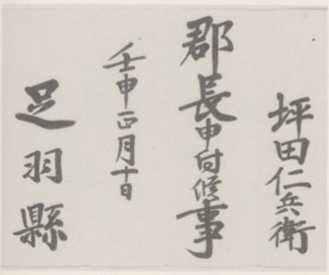 坪田仁兵衛
郡長申付候事
壬申正月十日
足羽縣